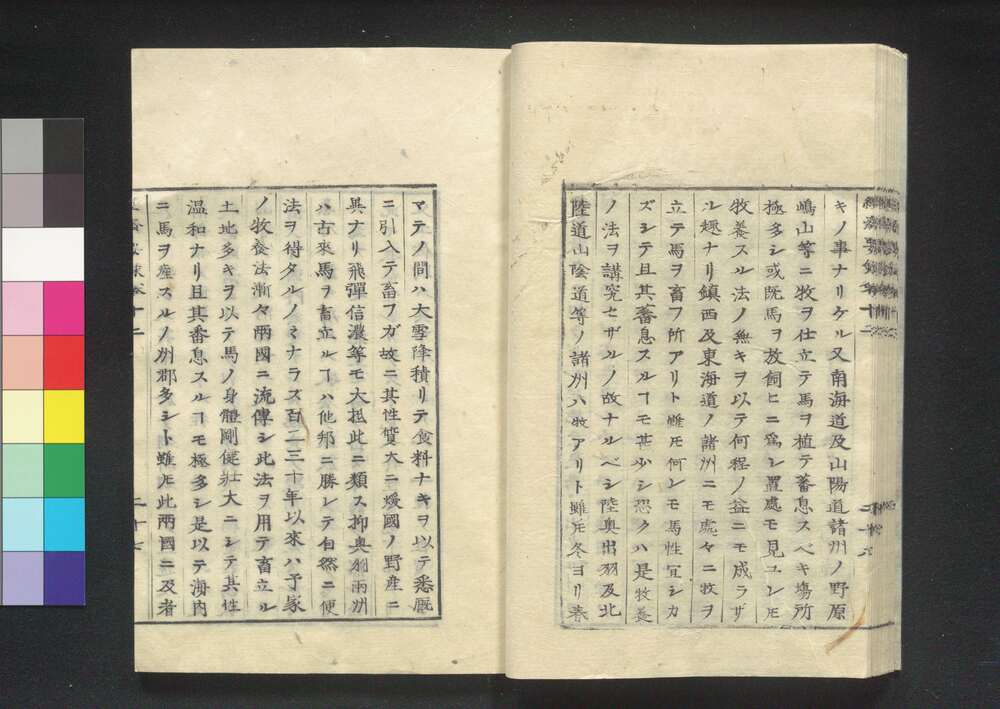 キノ事ナリケル又南海道及山陽道諸州ノ野原
嶋山等ニ牧ヲ仕立テ馬ヲ植テ蕃息スベキ場所
極多シ或既馬ヲ放飼ヒニ爲シ置處モ見ユレ𪜈
牧養スル法ノ無キヲ以テ何程ノ益ニモ成ラザ
ル趣ナリ鎮西及東海道ノ諸州ニモ處々ニ牧ヲ
立テ馬ヲ畜フ所アリト雖𪜈何レモ馬性宜シカ
ズシテ且其蕃息スルヿモ甚少シ恐クハ是牧養
ノ法ヲ講究セザルノ故ナルベシ陸奥出羽及北
陸道山陰道等ノ諸州ハ牧アリト雖𪜈冬ヨリ春
マテノ間ハ大雪降積リテ食料ナキヲ以テ悉厩
ニ引入テ畜フガ故ニ其性質大ニ煖國ノ野産ニ
異ナリ飛彈信濃等モ大抵此ニ類ス抑奥羽兩州
ハ古來馬ヲ畜立ルヿハ他邦ニ勝レテ自然ニ便
法ヲ得タルノミナラズ百二三十年以來ハ予家
ノ牧養法漸々兩國ニ流傳シ此法ヲ用テ畜立ル
土地多キヲ以テ馬ノ身體剛健壯大ニシテ其性
温和ナリ且其蕃息スルヿモ極多シ是以テ海内
ニ馬ヲ産スルノ州郡多シト雖𪜈此兩國ニ及者